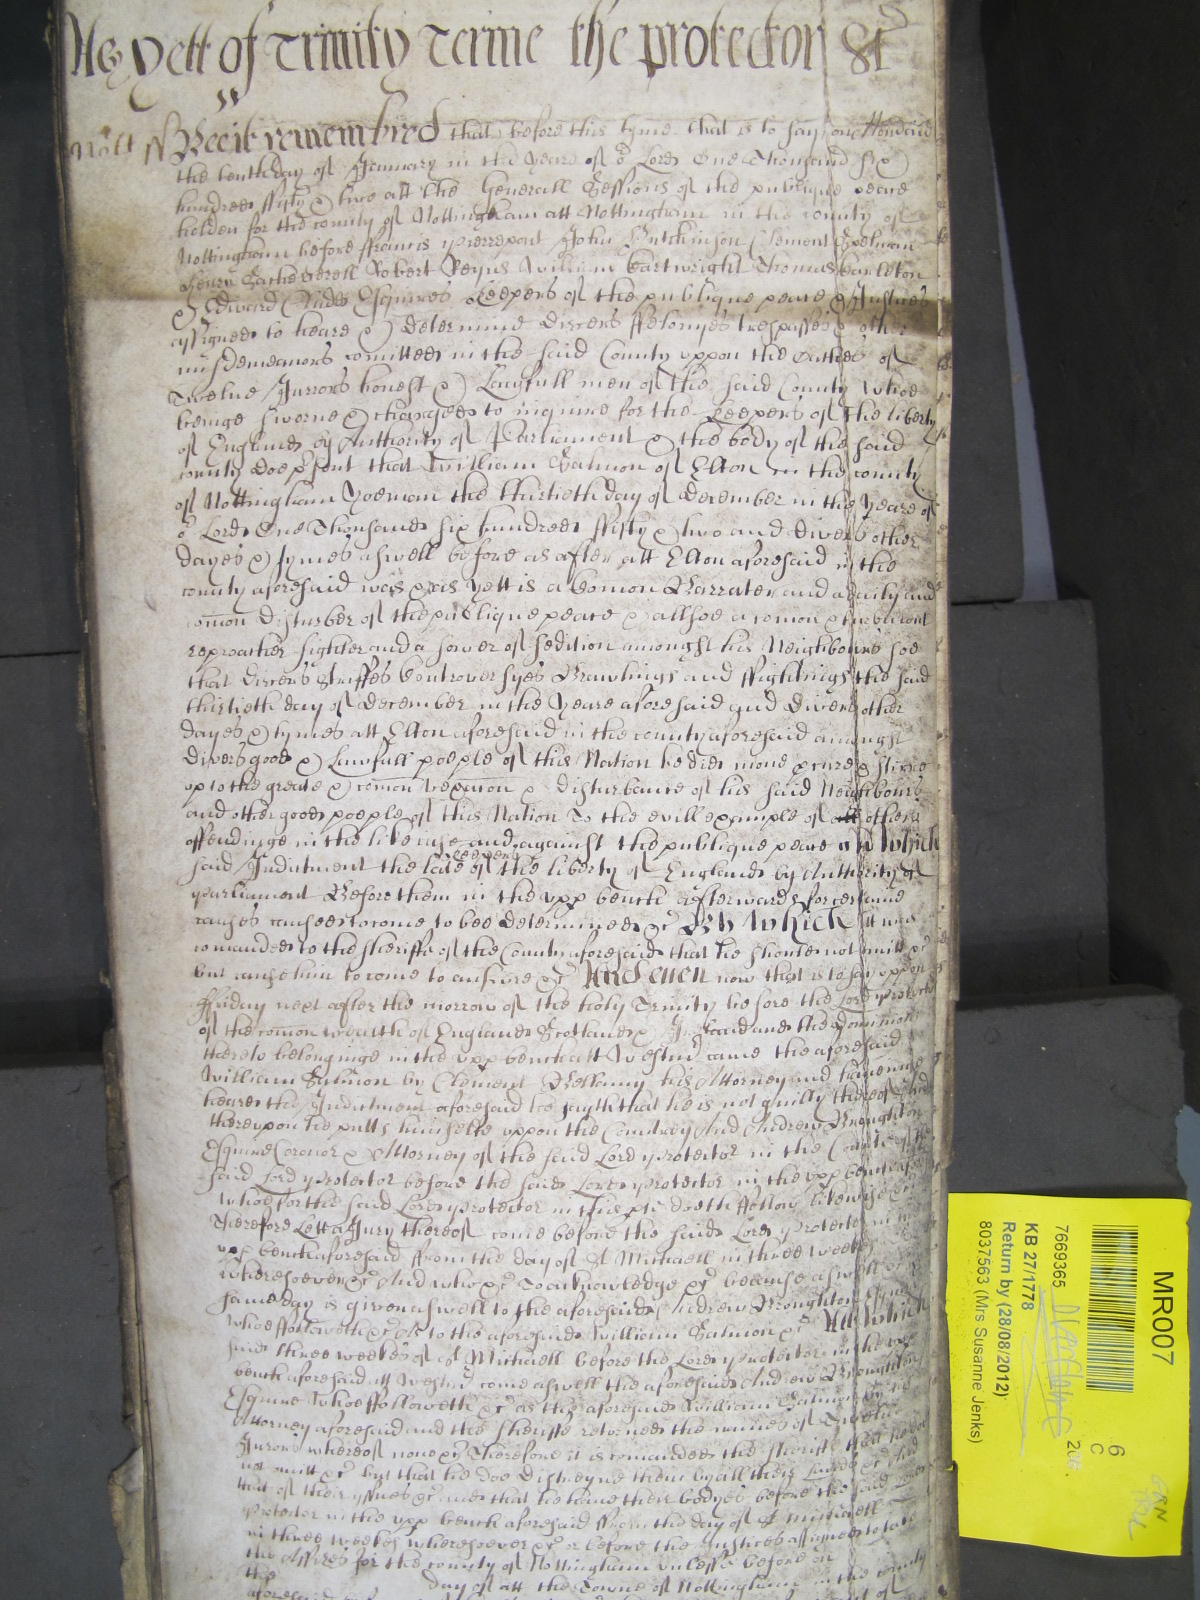 As yett of Trinity Terme the protector &c
Nott ss Bee it remembred that before this tyme that is to say on Mondaie
the tenth day of January in the yeare of oͬ Lord One Thousand six
hundred fifty & two att the Generall Sessions of the publique peace
holden for the county of Nottingham att Nottingham in the county of
Nottingham before ffrancis Pierrepont John Hutchinson Clement Spelman
Henry Sacheverell Robert Reyns William Cartwright Thomas
& Edward Esquires Keepers of the publique peace & Justices
assigned to heare & determine divers ffelonyes trespasses & other
misdemeanors comitted in the said County uppon the Oathes of
Twelve Jurrors honest & Lawfull men of the said County whoe
beinge sworne & charged to inquire for the Keepers of the liberty
of England by Authority of Parliament & the body of the said
county doe pᵉsent that William Salmon of Elton in the county
of Nottingham Yoeman the thirtieth day of December in the Yeare of
oͬ Lord One Thousand six hundred fifty & two and divers other
dayes & tymes aswell before as after att Elton aforesaid in the
county aforesaid was & as yett is a Comon Barrater and a daily and
comon disturber of the publique peace & allsoe a comon & turbulent
reproacher fighter and a sower of sedition amongst his Neighbours soe
that divers Striffes Controversyes Brawlings and ffightings the said
thirtieth day of December in the Yeare aforesaid and divers other
dayes & tymes att Elton aforesaid in the county aforesaid amongst
divers good & Lawfull poeple of this Nation he did move procure & stirre
up to the greate & comon vexation & disturbance of his said Neighbours
and other good poeple of this Nation To the evill example of all others
offendinge in the like case and against the publique peace &c Which
said Indictment the late keepers of the liberty of England by Authority of
parliament Before them in the upp bench afterwards for certaine
causes caused to come to bee determined &c By which itt was
comanded to the Sheriffe of the County aforesaid that he should not omitt &c
but cause him to come to answere &c And now that is to say uppon
ffriday next after the morrow of the holy Trinity before the Lord protector
of the comon wealth of England Scotland & Ireland and the dominions
thereto belonginge in the upp bench att Westmͬ came the aforesaid
William Salmon by Clement Bellamy his Attorney and haveinge
heard the Indictment aforesaid he sayth that he is not guilty thereof And
thereupon he putts himselfe uppon the Countrey And Andrew Broughton
Esquire Coronor & Attorney of the said Lord protector in the Court of the
said Lord protector before the said Lord protector in the upp bench aforesaid
whoe for the said Lord protector in this pte doeth ffollow likewise &c
Therefore Lett a Jury thereof come before the said Lord protector in the
upp bench aforesaid from the day of St Michaell in three weekes
wheresoever &c And who &c To acknowledge &c because aswell &c
same day is given aswell to the aforesaid Andrew Broughton
whoe ffolloweth &c as to the aforesaid William Salmon &c Att which
said three weekes of St Michaell before the Lord protector in the upp
bench aforesaid att Westmͬ come aswell the aforesaid Andrew Broughton
Esquire whoe ffolloweth &c as the aforesaid William Salmon by his
Attorney aforesaid and the Sheriffe retorned the names of Twelve
Jurors whereof none &c Therefore it is comanded the Sheriffe that he doe
not omitt &c but that he doe distreyne them by all their Lands &c And
that of their yssues &c and that he have their bodyes before the said Lord
protector in the upp bench aforesaid from the day of St Michaell
in three weekes wheresoever &c or before the Justices assigned to take
the Assises for the county of Nottingham unlesse before on
the day of att the Towne of Nottingham in the county
MR007
6
C
7669365
KB 27/1778
Return by (28/08/2012)
8037563 (Mrs Susanne Jenks)